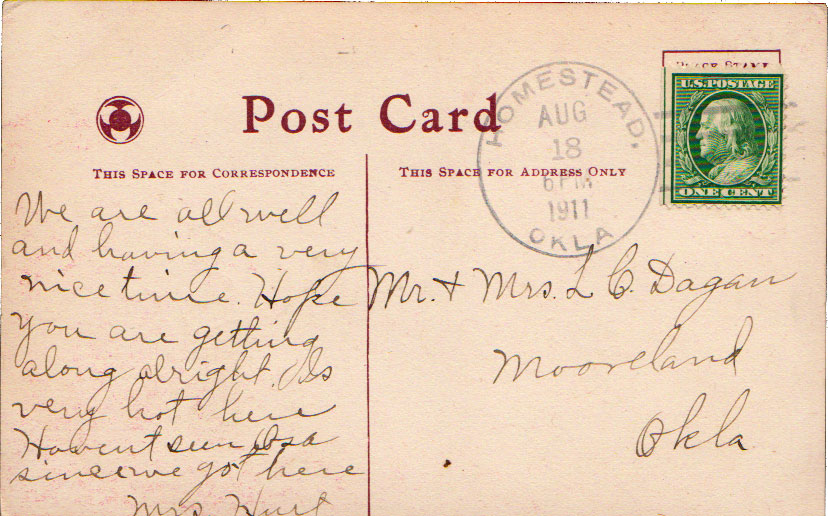 Post Card
THIS SPACE FOR CORRESPONDENCE
THIS SPACE FOR ADDRESS ONLY
HOMESTEAD,
AUG
18
6 PM
1911
OKLA
U.S. POSTAGE
ONE CENT
We are all well
and having a very
nice time. Hope
you are getting
along alright. Is
very hot here
Havent seen
since we got here
Mrs
Mr. + Mrs. L C. Dagan
Mooreland
Okla